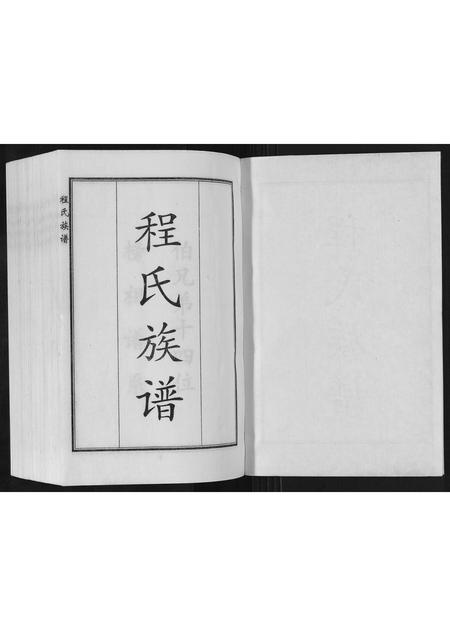 程氏族谱
程氏族谱